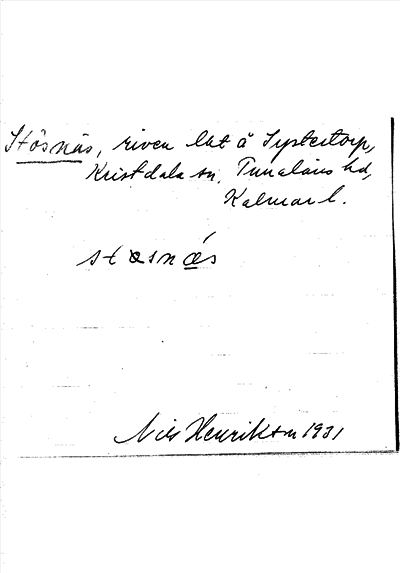 Stösnäs, riven lät å Systertorp,
Kristdala sn, Tunaläns hd,
Kalmar l.
stɵsnǽs
Nils Henrikson 1931